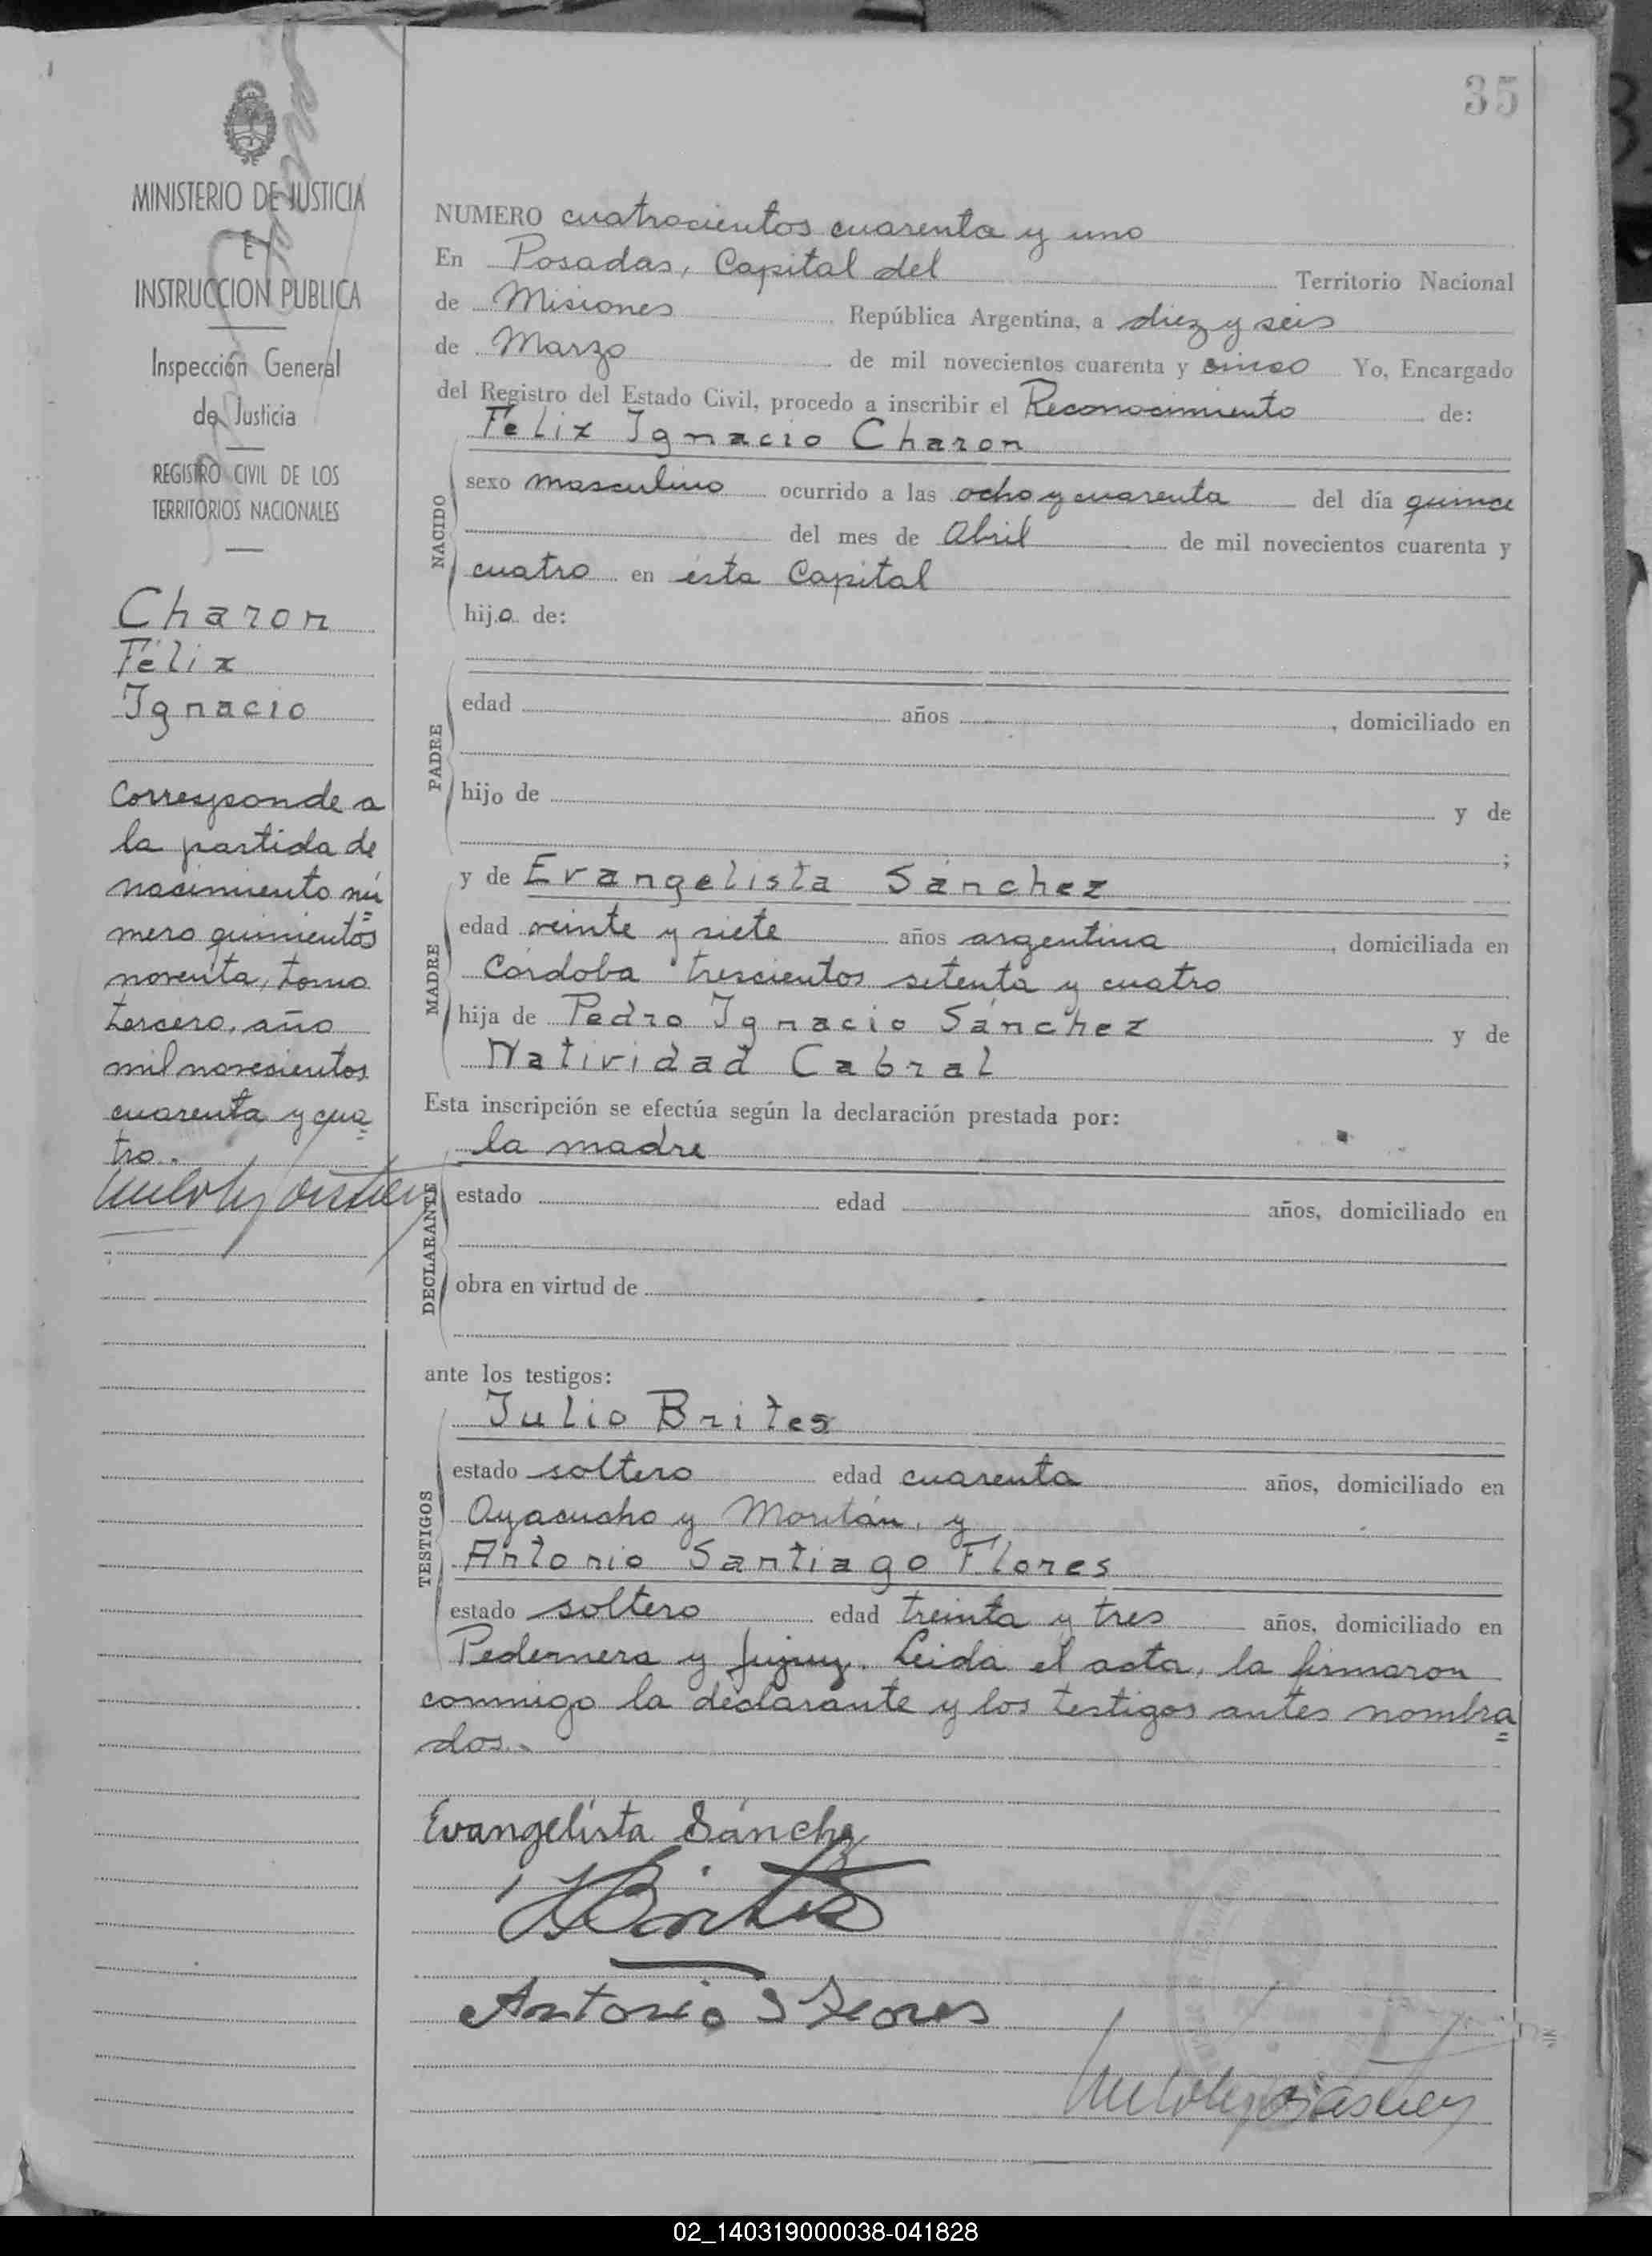 35
MINISTERIO DE JUSTICIA
E
INSTRUCCION PUBLICA
Inspección General
de Justicia
REGISTRO CIVIL DE LOS
TERRITORIOS NACIONALES
Charon
Félix
Ignacio
Corresponde a
la partida de
nacimiento nú=
mero quinientos
noventa, tomo
tercero, año
mil novecientos
cuarenta y cua=
tro.
NUMERO cuatrocientos cuarenta y uno
En Posadas, Capital del Territorio Nacional
de Misiones República Argentina, a diez y seis
de Marzo de mil novecientos cuarenta y cinco Yo, Encargado
del Registro del Estado Civil, procedo a inscribir el Reconocimiento de:
Félix Ignacio Charon
NACIDO
sexo masculino ocurrido a las ocho y cuarenta del día quince
del mes de Abril de mil novecientos cuarenta y
cuatro en ésta Capital
hijo de:
PADRE
edad años , domiciliado en
hijo de y de
;
MADRE
y de Evangelista Sánchez
edad veinte y siete años argentina , domiciliada en
Córdoba trescientos setenta y cuatro
hija de Pedro Ignacio Sánchez y de
Natividad Cabral
Esta inscripción se efectúa según la declaración prestada por:
la madre
DECLARANTE
estado edad años, domiciliado en
obra en virtud de
ante los testigos:
TESTIGOS
Julio Brites
estado soltero edad cuarenta años, domiciliado en
Ayacucho y Moritán, y
Antonio Santiago Flores
estado soltero edad treinta y tres años, domiciliado en
Pedernera y Jujuy. Leida el acta, la firmaron
conmigo la declarante y los testigos antes nombra=
dos.
Evangelista Sánchez
J Brites
Antonio S Flores
02_140319000038-041828